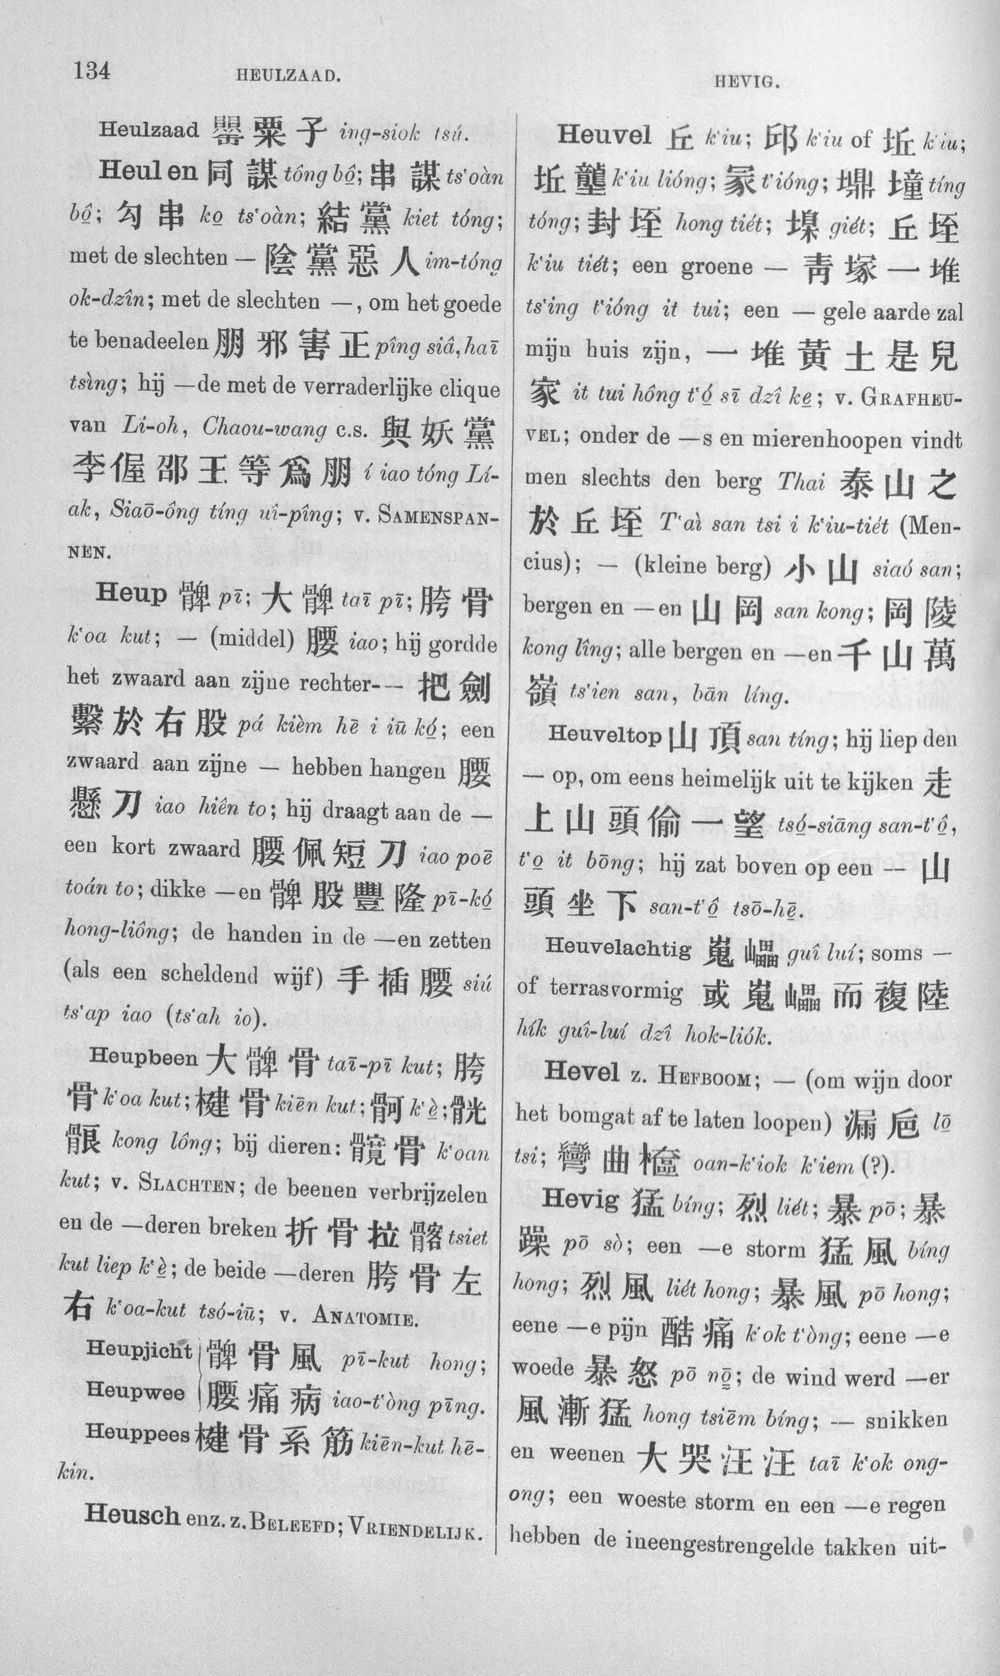 134
HEULZAAD.
HEVIG.
Heulzaad 罌粟子 ing-siok tsú.
Heulen 同謀 tông bô͘; 串謀 ts‘oàn
bô͘; 勾串 ko͘ ts‘oàn; 結黨 kiet tóng;
met de slechten — 陰黨惡人 im-tóng
ok-dzîn; met de slechten —, om het goede
te benadeelen 朋邪害正 pîng siâ, haī
tsìng; hij —de met de verraderlijke clique
van Li-oh, Chaou-wang c.s. 與妖黨
李偓邵王等爲朋 í iao tóng Lí-
ak, Siaō-ông tíng uî-pîng; v. SAMENSPAN-
NEN.
Heup 髀 pī; 大髀 taī pī; 胯骨
k‘oa kut; — (middel) 腰 iao; hij gordde
het zwaard aan zijne rechter-— 把劍
繫於右股 pá kièm hē i iū kó͘; een
zwaard aan zijne — hebben hangen 腰
懸刀 iao hiên to; hij draagt aan de —
een kort zwaard 腰佩短刀 iao poē
toán to; dikke —en 髀股豐隆 pī-kó͘
hong-liông; de handen in de —en zetten
(als een scheldend wijf) 手插腰 siú
ts‘ap iao (ts‘ah io).
Heupbeen 大髀骨 taī-pī kut; 胯
骨 k‘oa kut; 楗骨 kiēn kut; 骭 k‘è͘; 骩
骽 kong lông; bij dieren: 髖骨 k‘oan
kut; v. SLACHTEN; de beenen verbrijzelen
en de —deren breken 折骨拉髂 tsiet
kut liep k‘è͘; de beide —deren 胯骨左
右 k‘oa-kut tsó-iū; v. ANATOMIE.
Heupjicht 髀骨風 pī-kut hong;
Heupwee 腰痛病 iao-t‘òng pīng.
Heuppees 楗骨系筋 kiēn-kut hē-
kin.
Heusch enz. z. BELEEFD; VRIENDELIJK.
Heuvel 丘 k‘iu; 邱 k‘iu of 坵 k‘iu;
坵壟 k‘iu lióng; 冢 t‘ióng; 塸墥 tíng
tóng; 封垤 hong tiét; 堁 giét; 丘垤
k‘iu tiét; een groene — 青塚一堆
ts‘ing t‘ióng it tui; een — gele aarde zal
mijn huis zijn, 一堆黃土是兒
家 it tui hông t‘ó͘ sī dzî ke͘; v. GRAFHEU-
VEL; onder de —s en mierenhoopen vindt
men slechts den berg Thai 泰山之
於丘垤 T‘aì san tsi i k‘iu-tiét (Men-
cius); — (kleine berg) 小山 siaó san;
bergen en —en 山岡 san kong; 岡陵
kong lîng; alle bergen en —en 千山萬
嶺 ts‘ien san, bān líng.
Heuveltop 山頂 san tíng; hij liep den
— op, om eens heimelijk uit te kijken 走
上山頭偷一望 tsó͘-siāng san-t‘ô͘,
t‘o͘ it bōng; hij zat boven op een — 山
頭坐下 san-t‘ô͘ tsō-hē͘.
Heuvelachtig 嵬㠥 guî luí; soms —
of terrasvormig 或嵬㠥而複陸
hík guî-luí dzî hok-liók.
Hevel z. HEFBOOM; — (om wijn door
het bomgat af te laten loopen) 漏卮 lō͘
tsi; 彎曲榼 oan-k‘iok k‘iem (?).
Hevig 猛 bíng; 烈 liét; 暴 pō; 暴
躁 pō sò; een —e storm 猛風 bíng
hong; 烈風 liét hong; 暴風 pō hong;
eene —e pijn 酷痛 k‘ok t‘òng; eene —e
woede 暴怒 pō nō͘; de wind werd —er
風漸猛 hong tsiēm bíng; — snikken
en weenen 大哭汪汪 taī k‘ok ong-
ong; een woeste storm en een —e regen
hebben de ineengestrengelde takken uit-